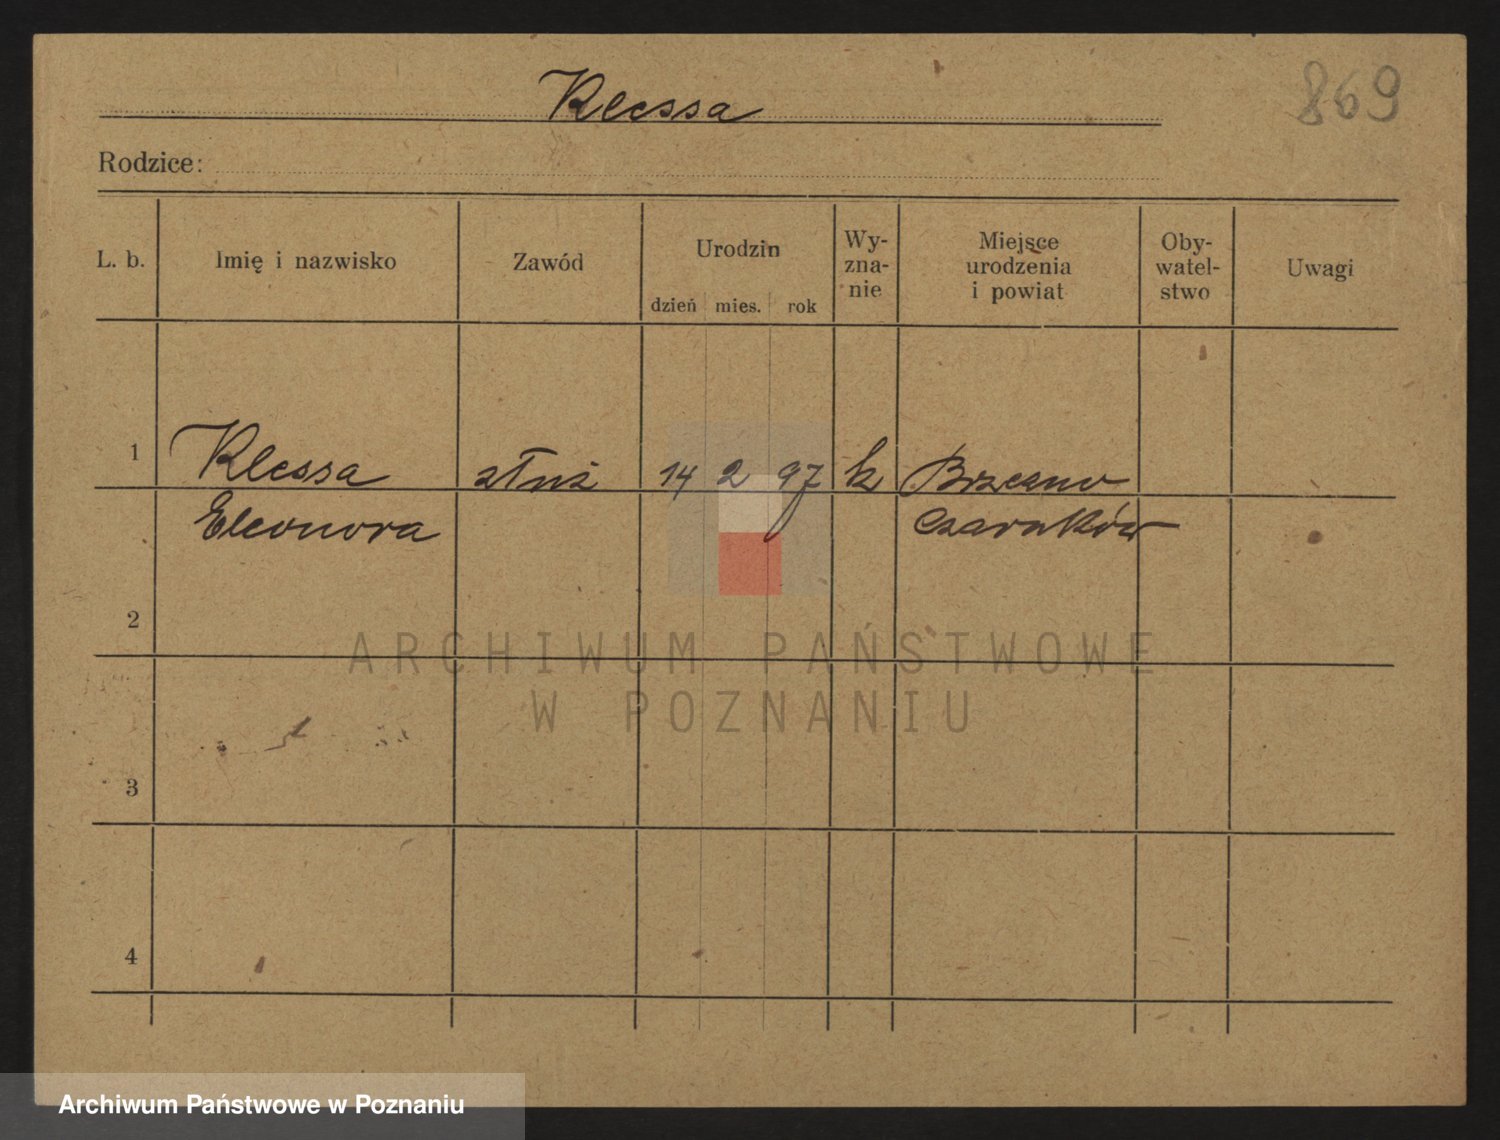 Klessa
869
Rodzice:
L. b.
Imię i nazwisko
Zawód
Urodzin
dzień mies. rok
Wy-
zna-
nie
Miejsce
urodzenia
i powiat
Oby-
watel-
stwo
Uwagi
1
Klessa
Eleonora
14 2 97
k
Brzezno
Czarnków
2
3
4
ARCHIWUM PAŃSTWOWE
W POZNANIU
Archiwum Państwowe w Poznaniu